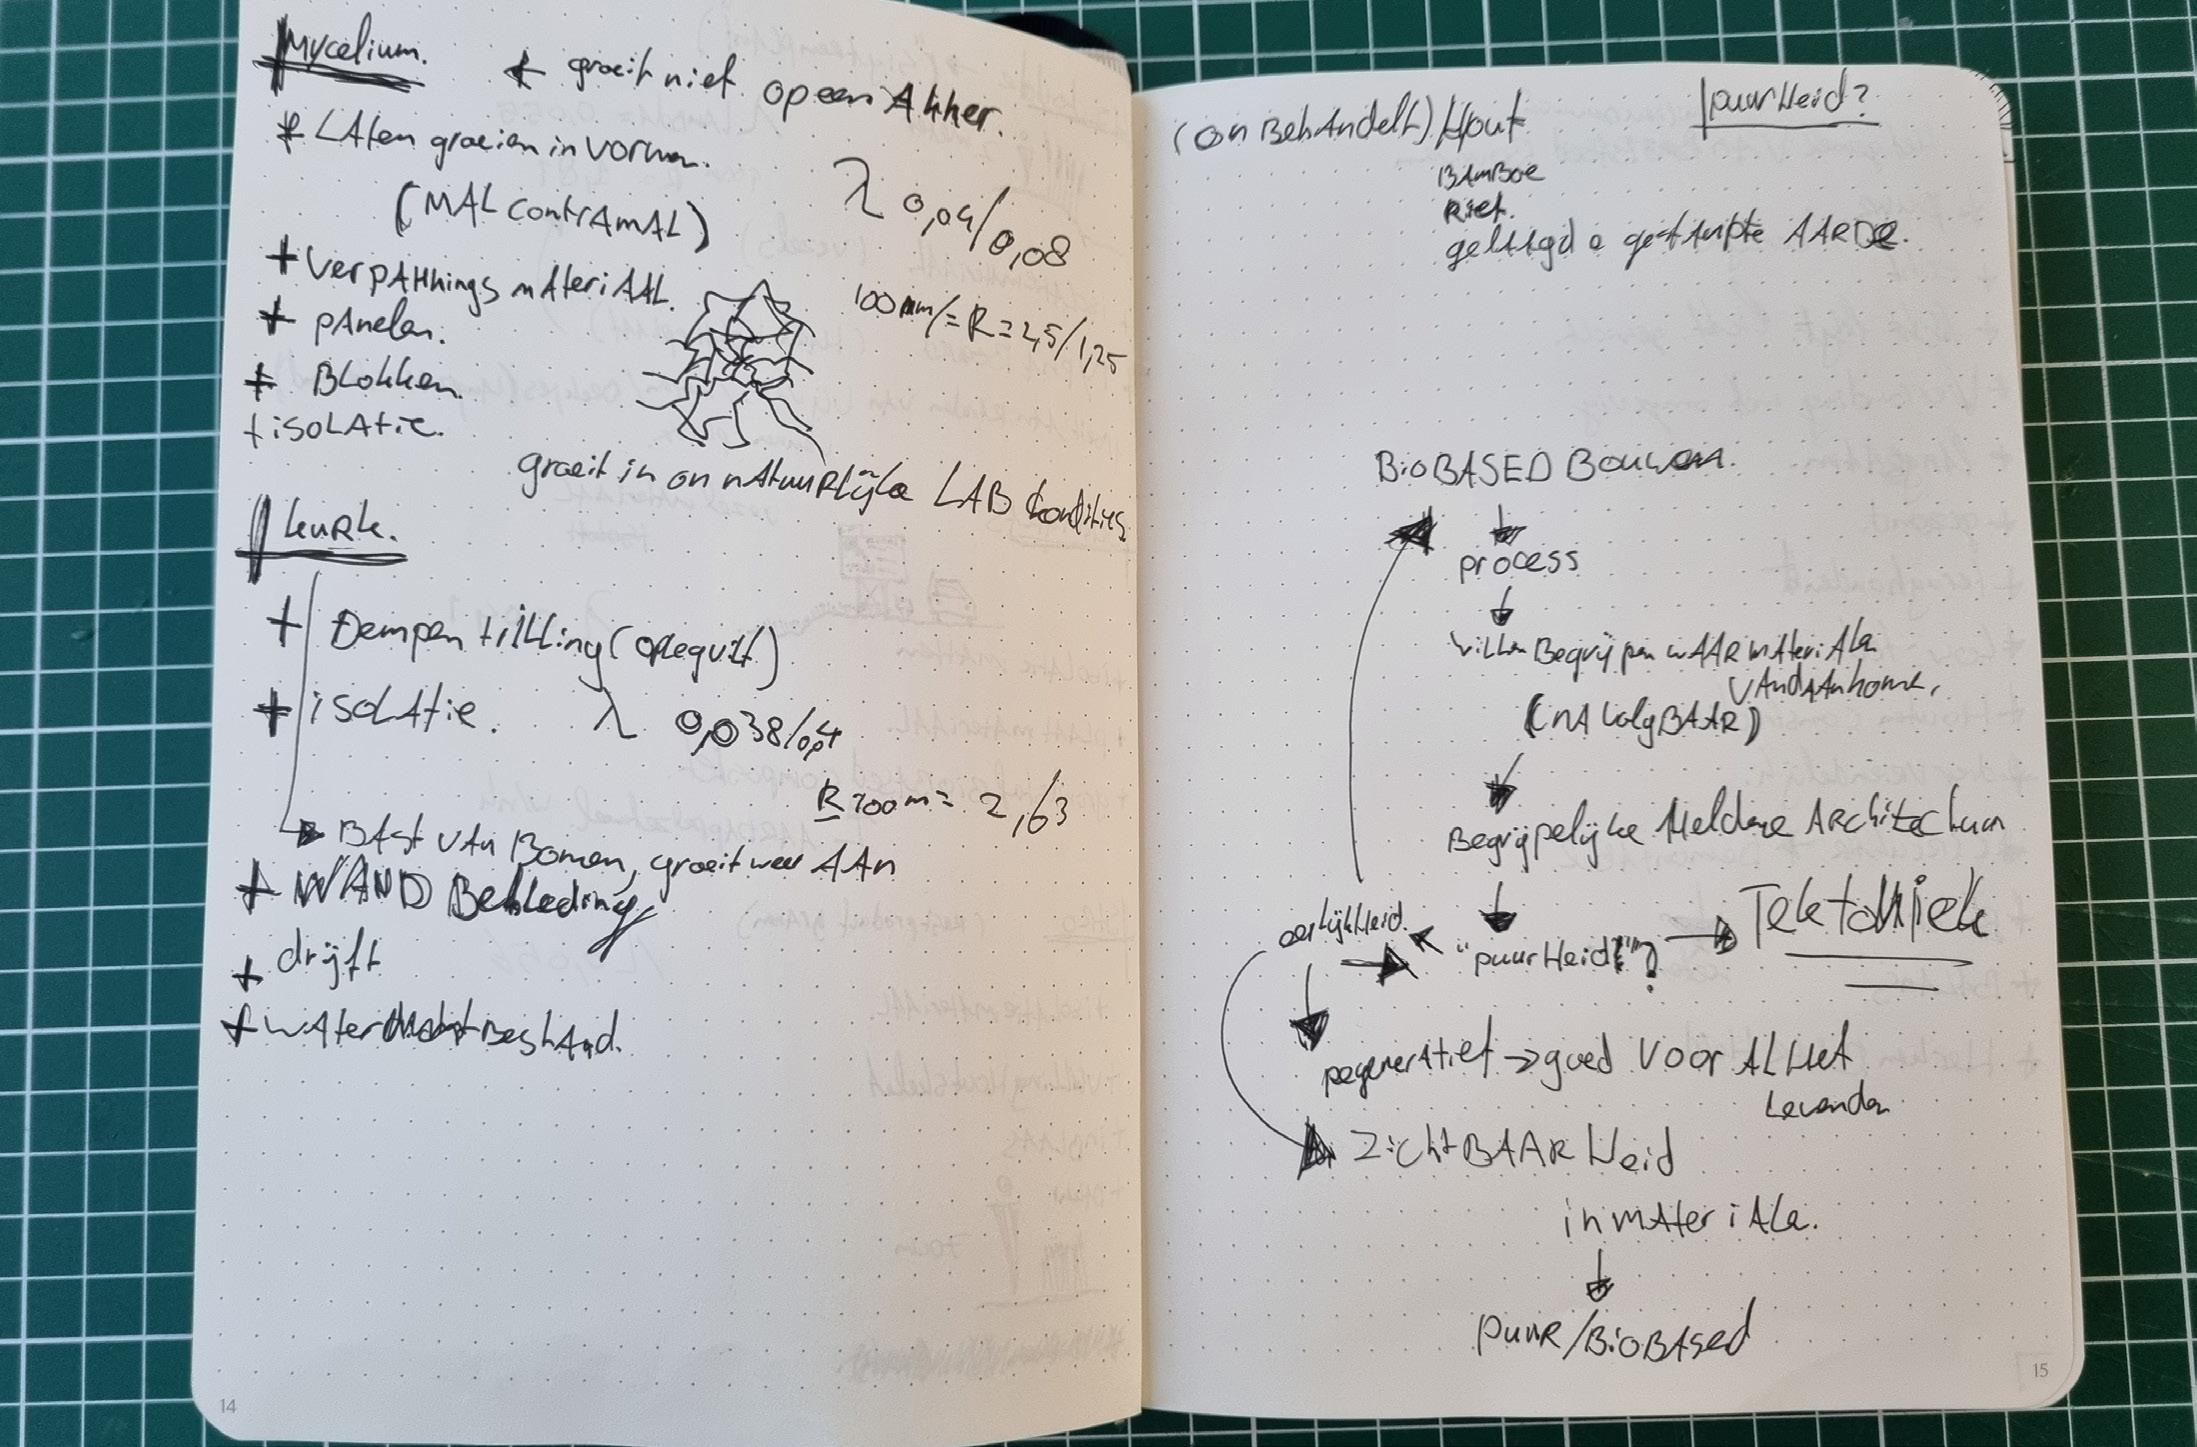 Mycelium.
← groeit niet op een Akker.
* LAten groeien in vormen.
(MAL contrAmAL)
λ 0,04/0,08
+ verpAkkings mAteriAAL.
100 mm/= R = 2,5/1,25
+ pAnelen.
+ BLokken.
+ isoLAtie.
groeit in on nAtuuRlijke LAB kondities
kuRk.
+ Dempen trilling (oplegvilt)
+ isoLAtie. λ 0,038/0,4
R 100 m = 2,63
BAst VAn Bomen, groeit weer AAn
+ WAND Bekleding
+ drijft
+ wAter BestAnd.
14
puurHeid?
(on BehAndelt) Hout
BAmBoe
Riet.
gelAAgd o gestAmpte AARDe.
BioBASED Bouwen.
process
willen Begrijpen wAAR mAteriAlen
VAndAAn komen,
(nA volgBAAR)
Begrijpelijke Heldere ARchitectuur
eerlijkHeid.
"puurHeid"?
TektoNiek
Regeneratief → goed Voor AL Het
Levenden
ZichtBAAR Heid
in mAteriALen.
puuR/BioBAsed
15